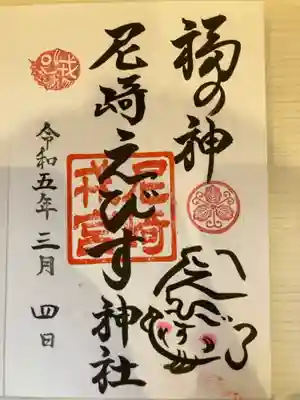 福の神
尼崎えびす神社
尼崎
戎宮
令和五年三月四日
戎